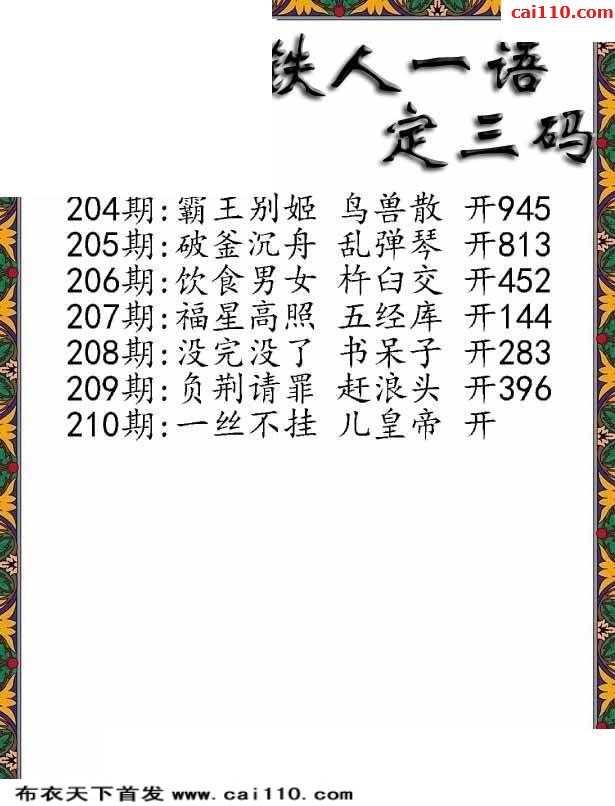 cai110.com
铁人一语
定三码
204期:霸王别姬 鸟兽散 开945
205期:破釜沉舟 乱弹琴 开813
206期:饮食男女 杵臼交 开452
207期:福星高照 五经库 开144
208期:没完没了 书呆子 开283
209期:负荆请罪 赶浪头 开396
210期:一丝不挂 儿皇帝 开
布衣天下首发 www.cai110.com